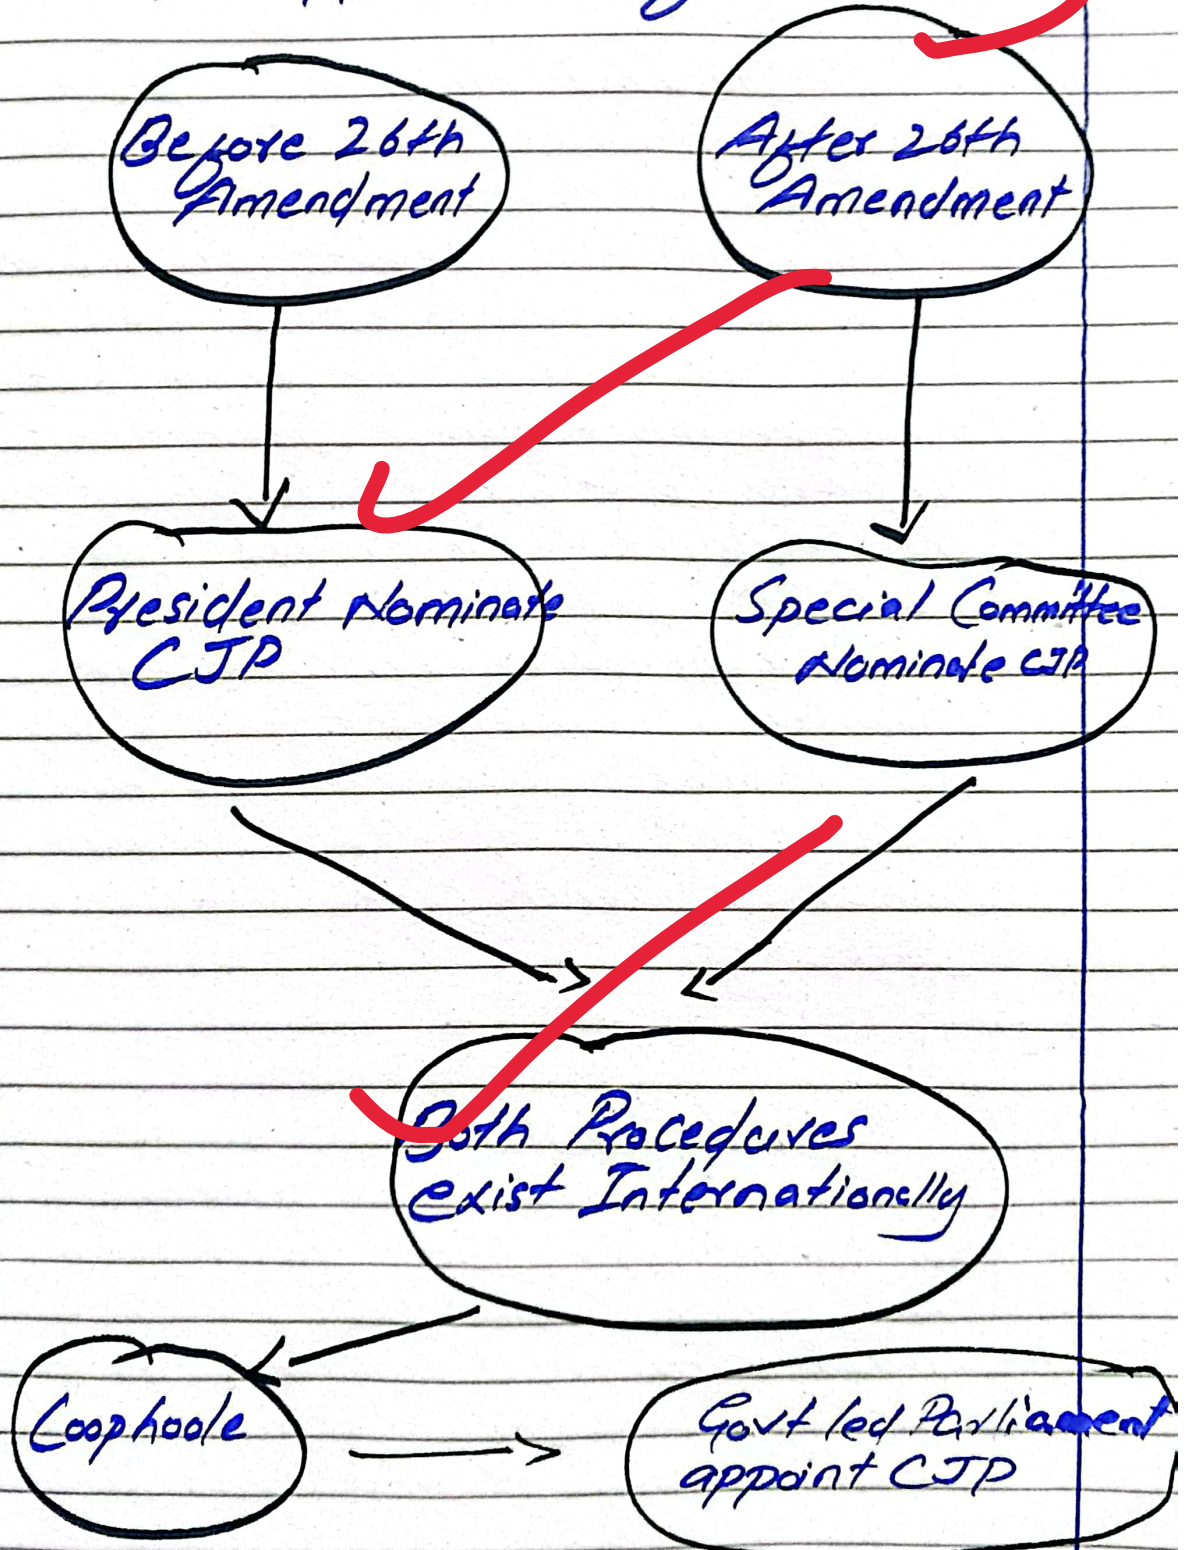 Before 26th
Amendment
After 26th
Amendment
President Nominate
CJP
Special Committee
Nominate CJP
Both Procedures
exist Internationally
Loophoole
Govt led Parliament
appoint CJP